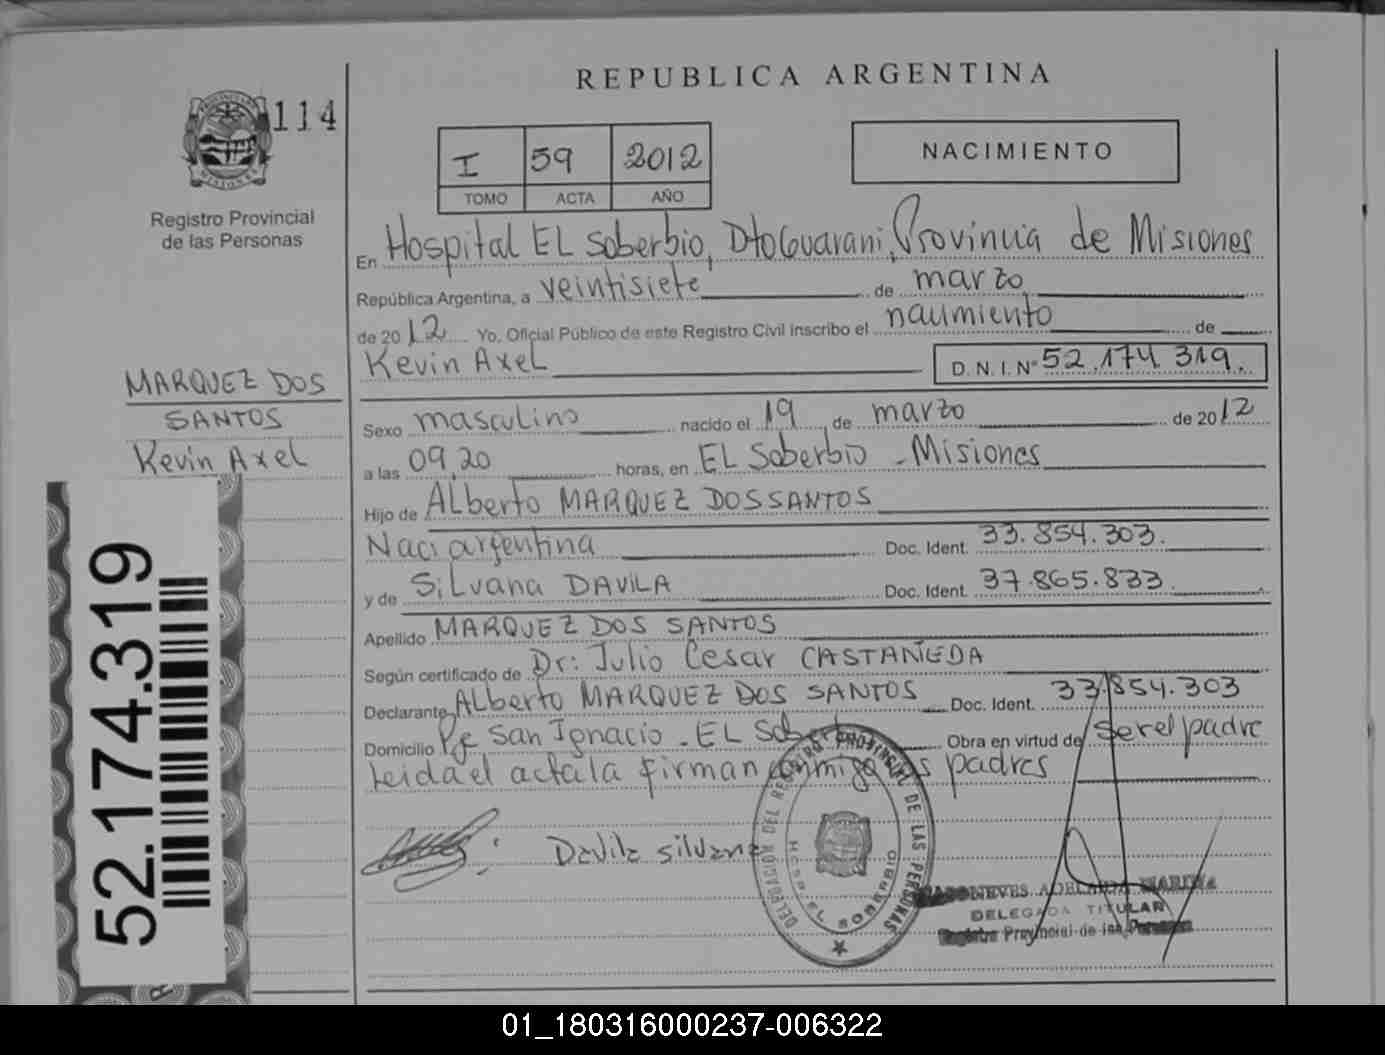 REPUBLICA ARGENTINA
114
PROVINCIA DE
MISIONES
Registro Provincial
de las Personas
I 59 2012
TOMO ACTA AÑO
NACIMIENTO
En Hospital EL Soberbio, Dto Guarani, Provincia de Misiones
República Argentina, a veintisiete de marzo
de 2012 Yo, Oficial Público de este Registro Civil inscribo el nacimiento de
Kevin Axel D.N.I.Nº 52.174.319.
MARQUEZ DOS
SANTOS
Kevin Axel
Sexo masculino nacido el 19 de marzo de 2012
a las 09,20 horas, en EL Soberbio - Misiones
Hijo de Alberto MARQUEZ DOSSANTOS
Naci argentina Doc. Ident. 33.854.303.
y de Silvana DAVILA Doc. Ident. 37.865.833
Apellido MARQUEZ DOS SANTOS
Según certificado de Dr: Julio Cesar CASTAÑEDA
Declarante Alberto MARQUEZ DOS SANTOS Doc. Ident. 33.854.303
Domicilio Pje San Ignacio - EL Soberbio Obra en virtud de ser el padre
Leida el acta la firman conmigo los padres
Davila silvana
DELEGACION DEL REGISTRO PROVINCIAL DE LAS PERSONAS
HOSP. EL SOBERBIO
NIEVES ADELAIDA MARINA
DELEGADA TITULAR
Registro Provincial de las Personas
52.174.319
01_180316000237-006322